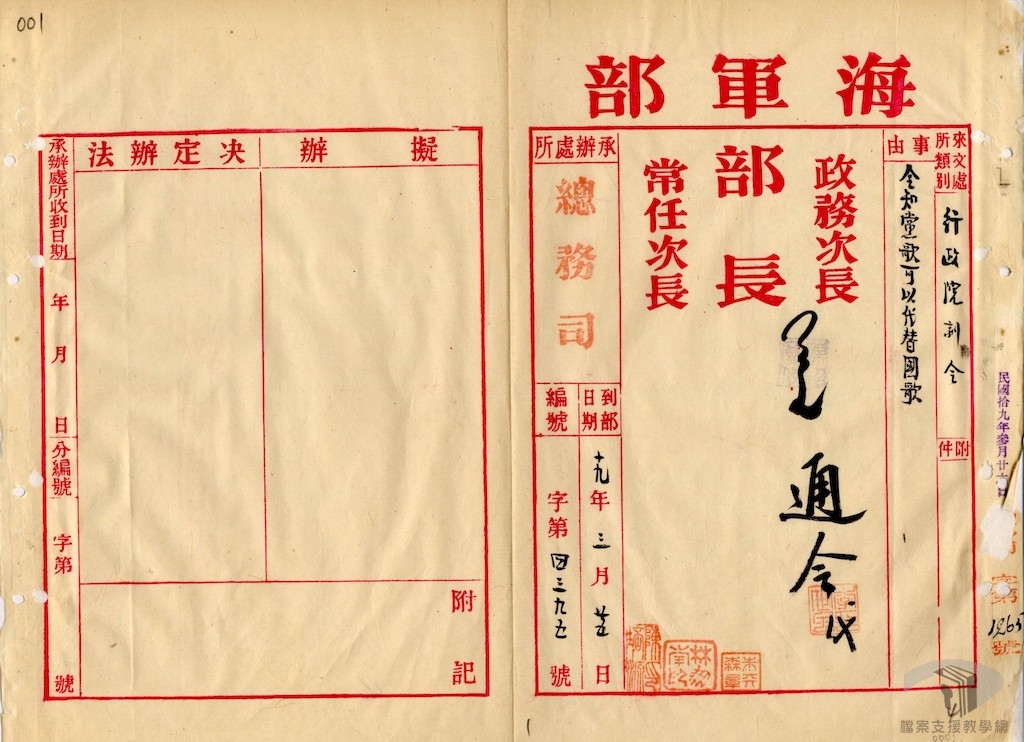 001
海軍部
來文處所類別
行政院訓令
附件
事由
令知黨歌可以代替國歌
政務次長
部長
常任次長
通令
代
承辦處所
總務司
到部日期
十九年三月廿五日
編號
字第四三九五號
擬辦
決定辦法
附記
承辦處所收到日期
年月日
分編號
字第號
民國拾九年參月廿六日
字第1265號
檔案支援教學網